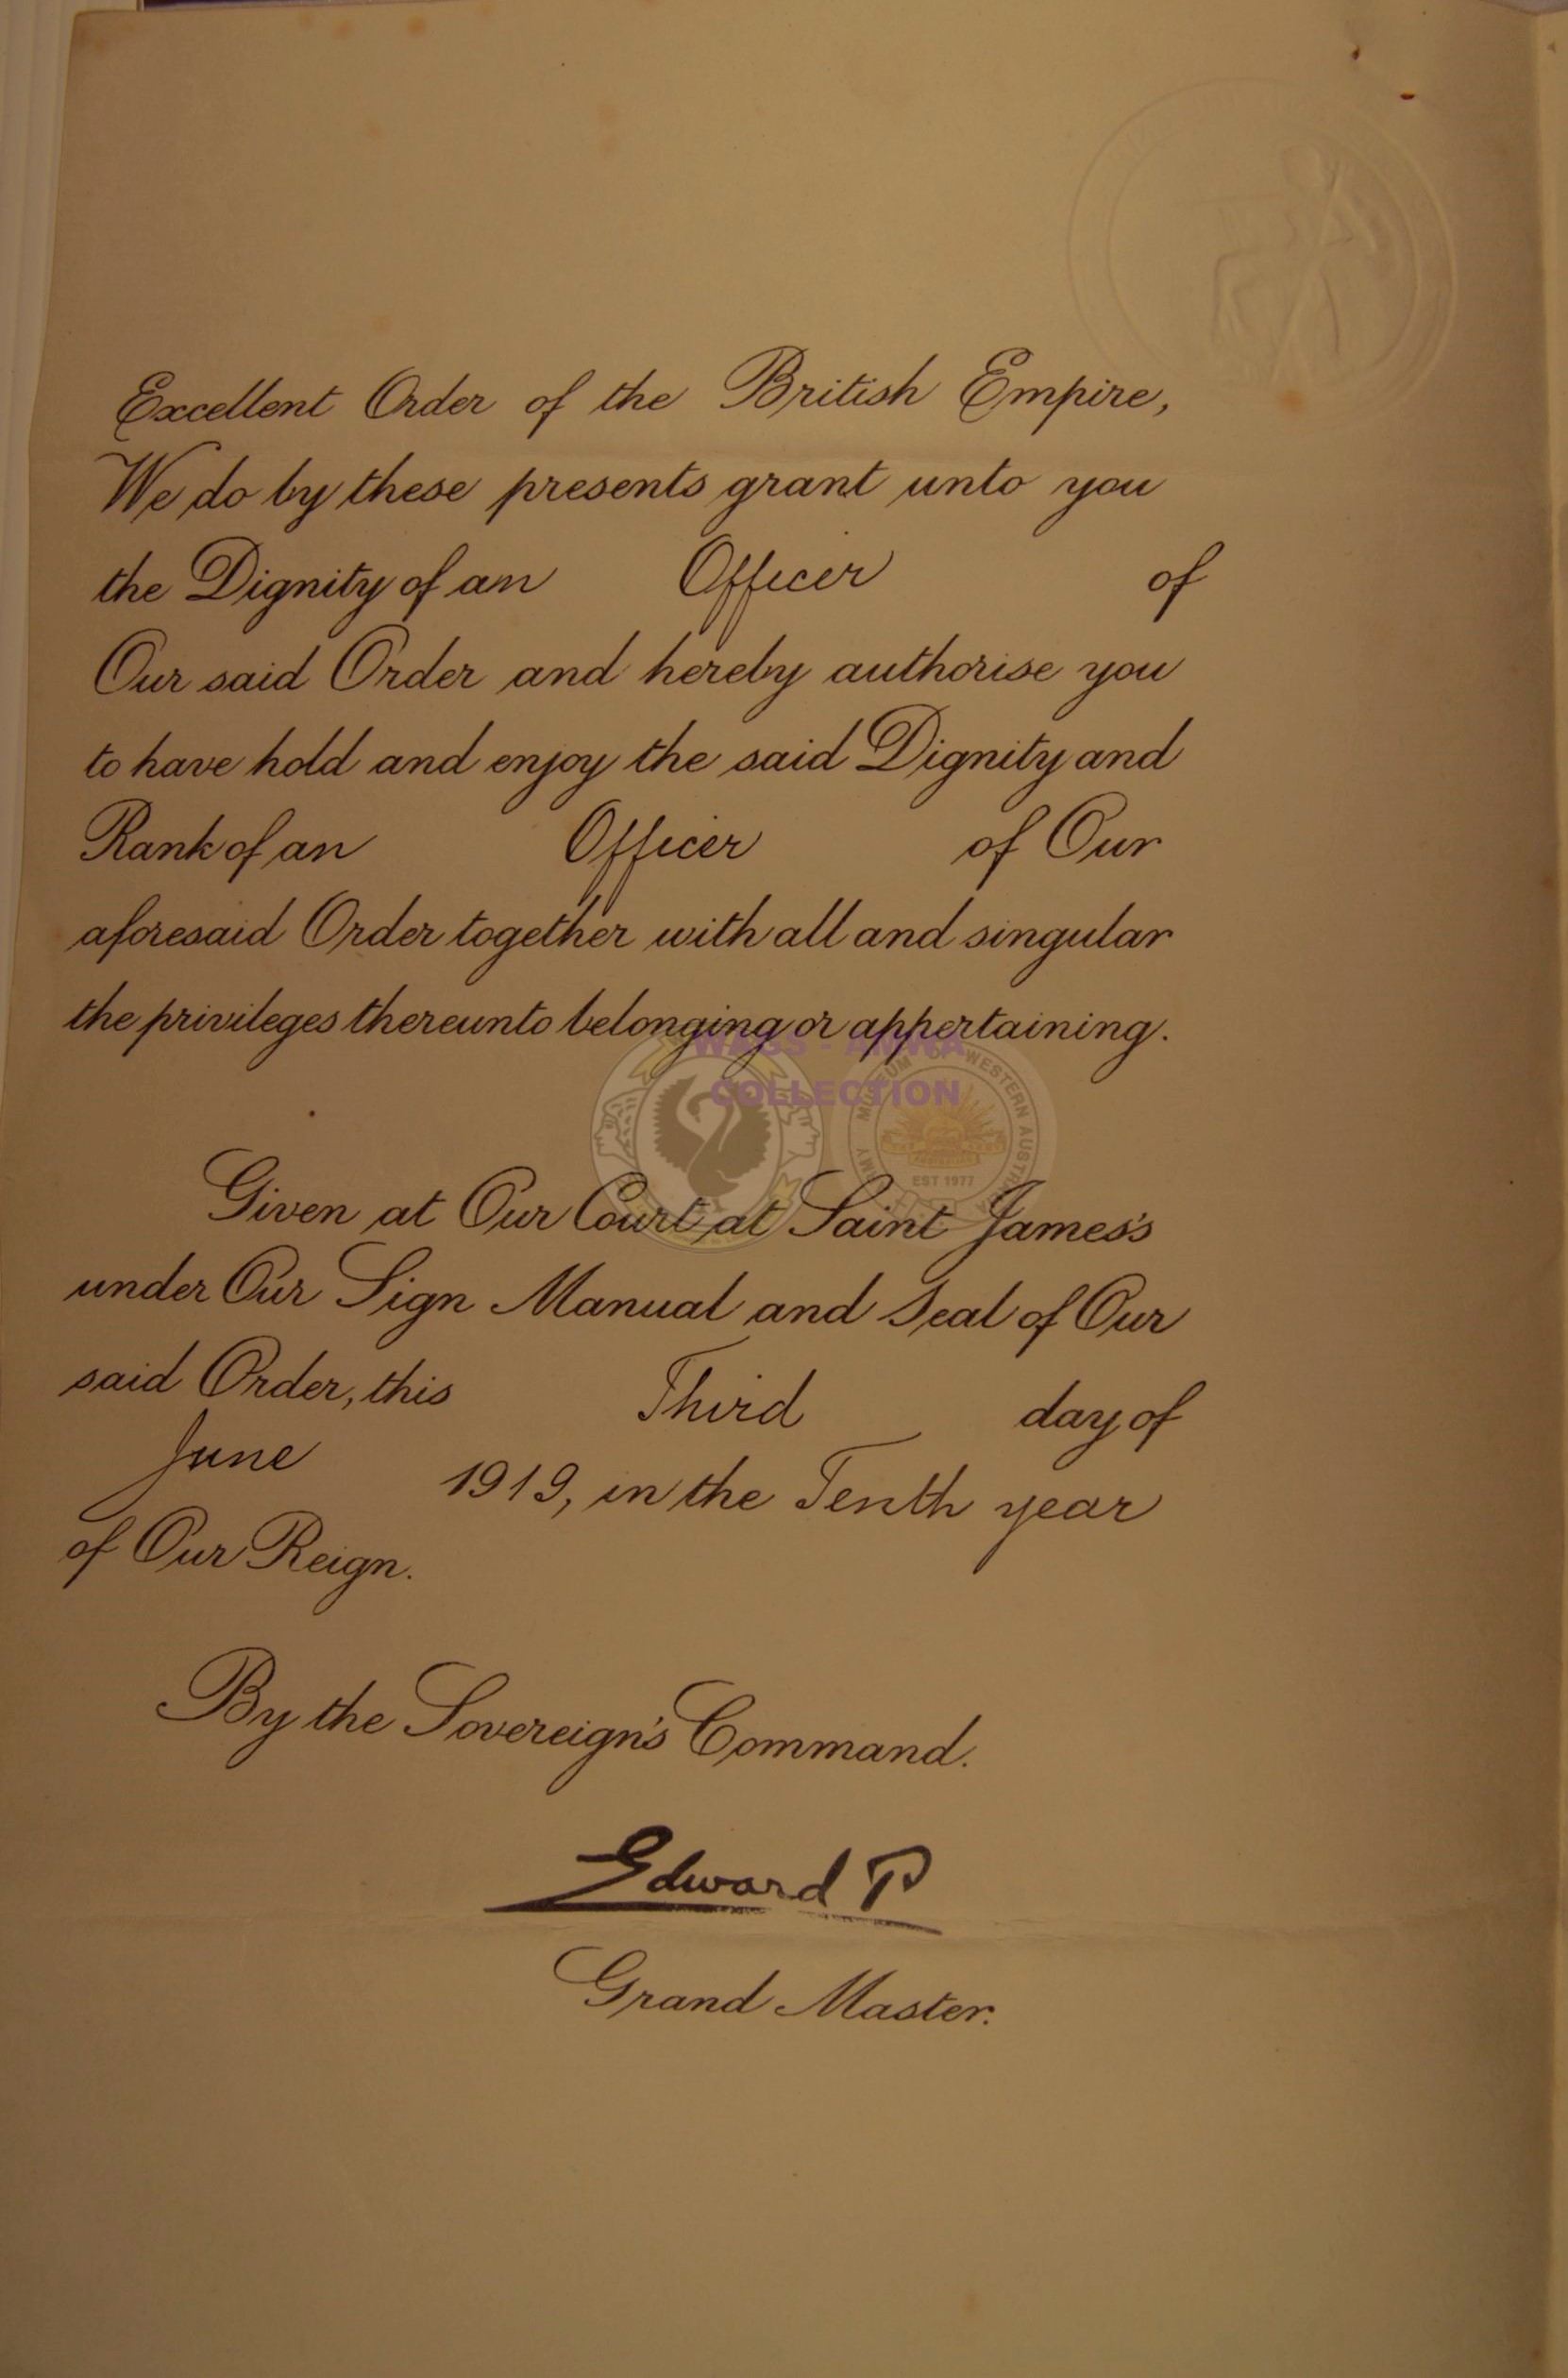 Excellent Order of the British Empire,
We do by these presents grant unto you
the Dignity of an Officer of
Our said Order and hereby authorise you
to have hold and enjoy the said Dignity and
Rank of an Officer of Our
aforesaid Order together with all and singular
the privileges thereunto belonging or appertaining.
WAGS - AMWA
COLLECTION
MUSEUM OF WESTERN AUSTRALIA
ARMY
EST 1977
Given at Our Court at Saint James's
under Our Sign Manual and Seal of Our
said Order, this Third day of
June 1919, in the Tenth year
of Our Reign.
By the Sovereign's Command.
Edward P
Grand Master.